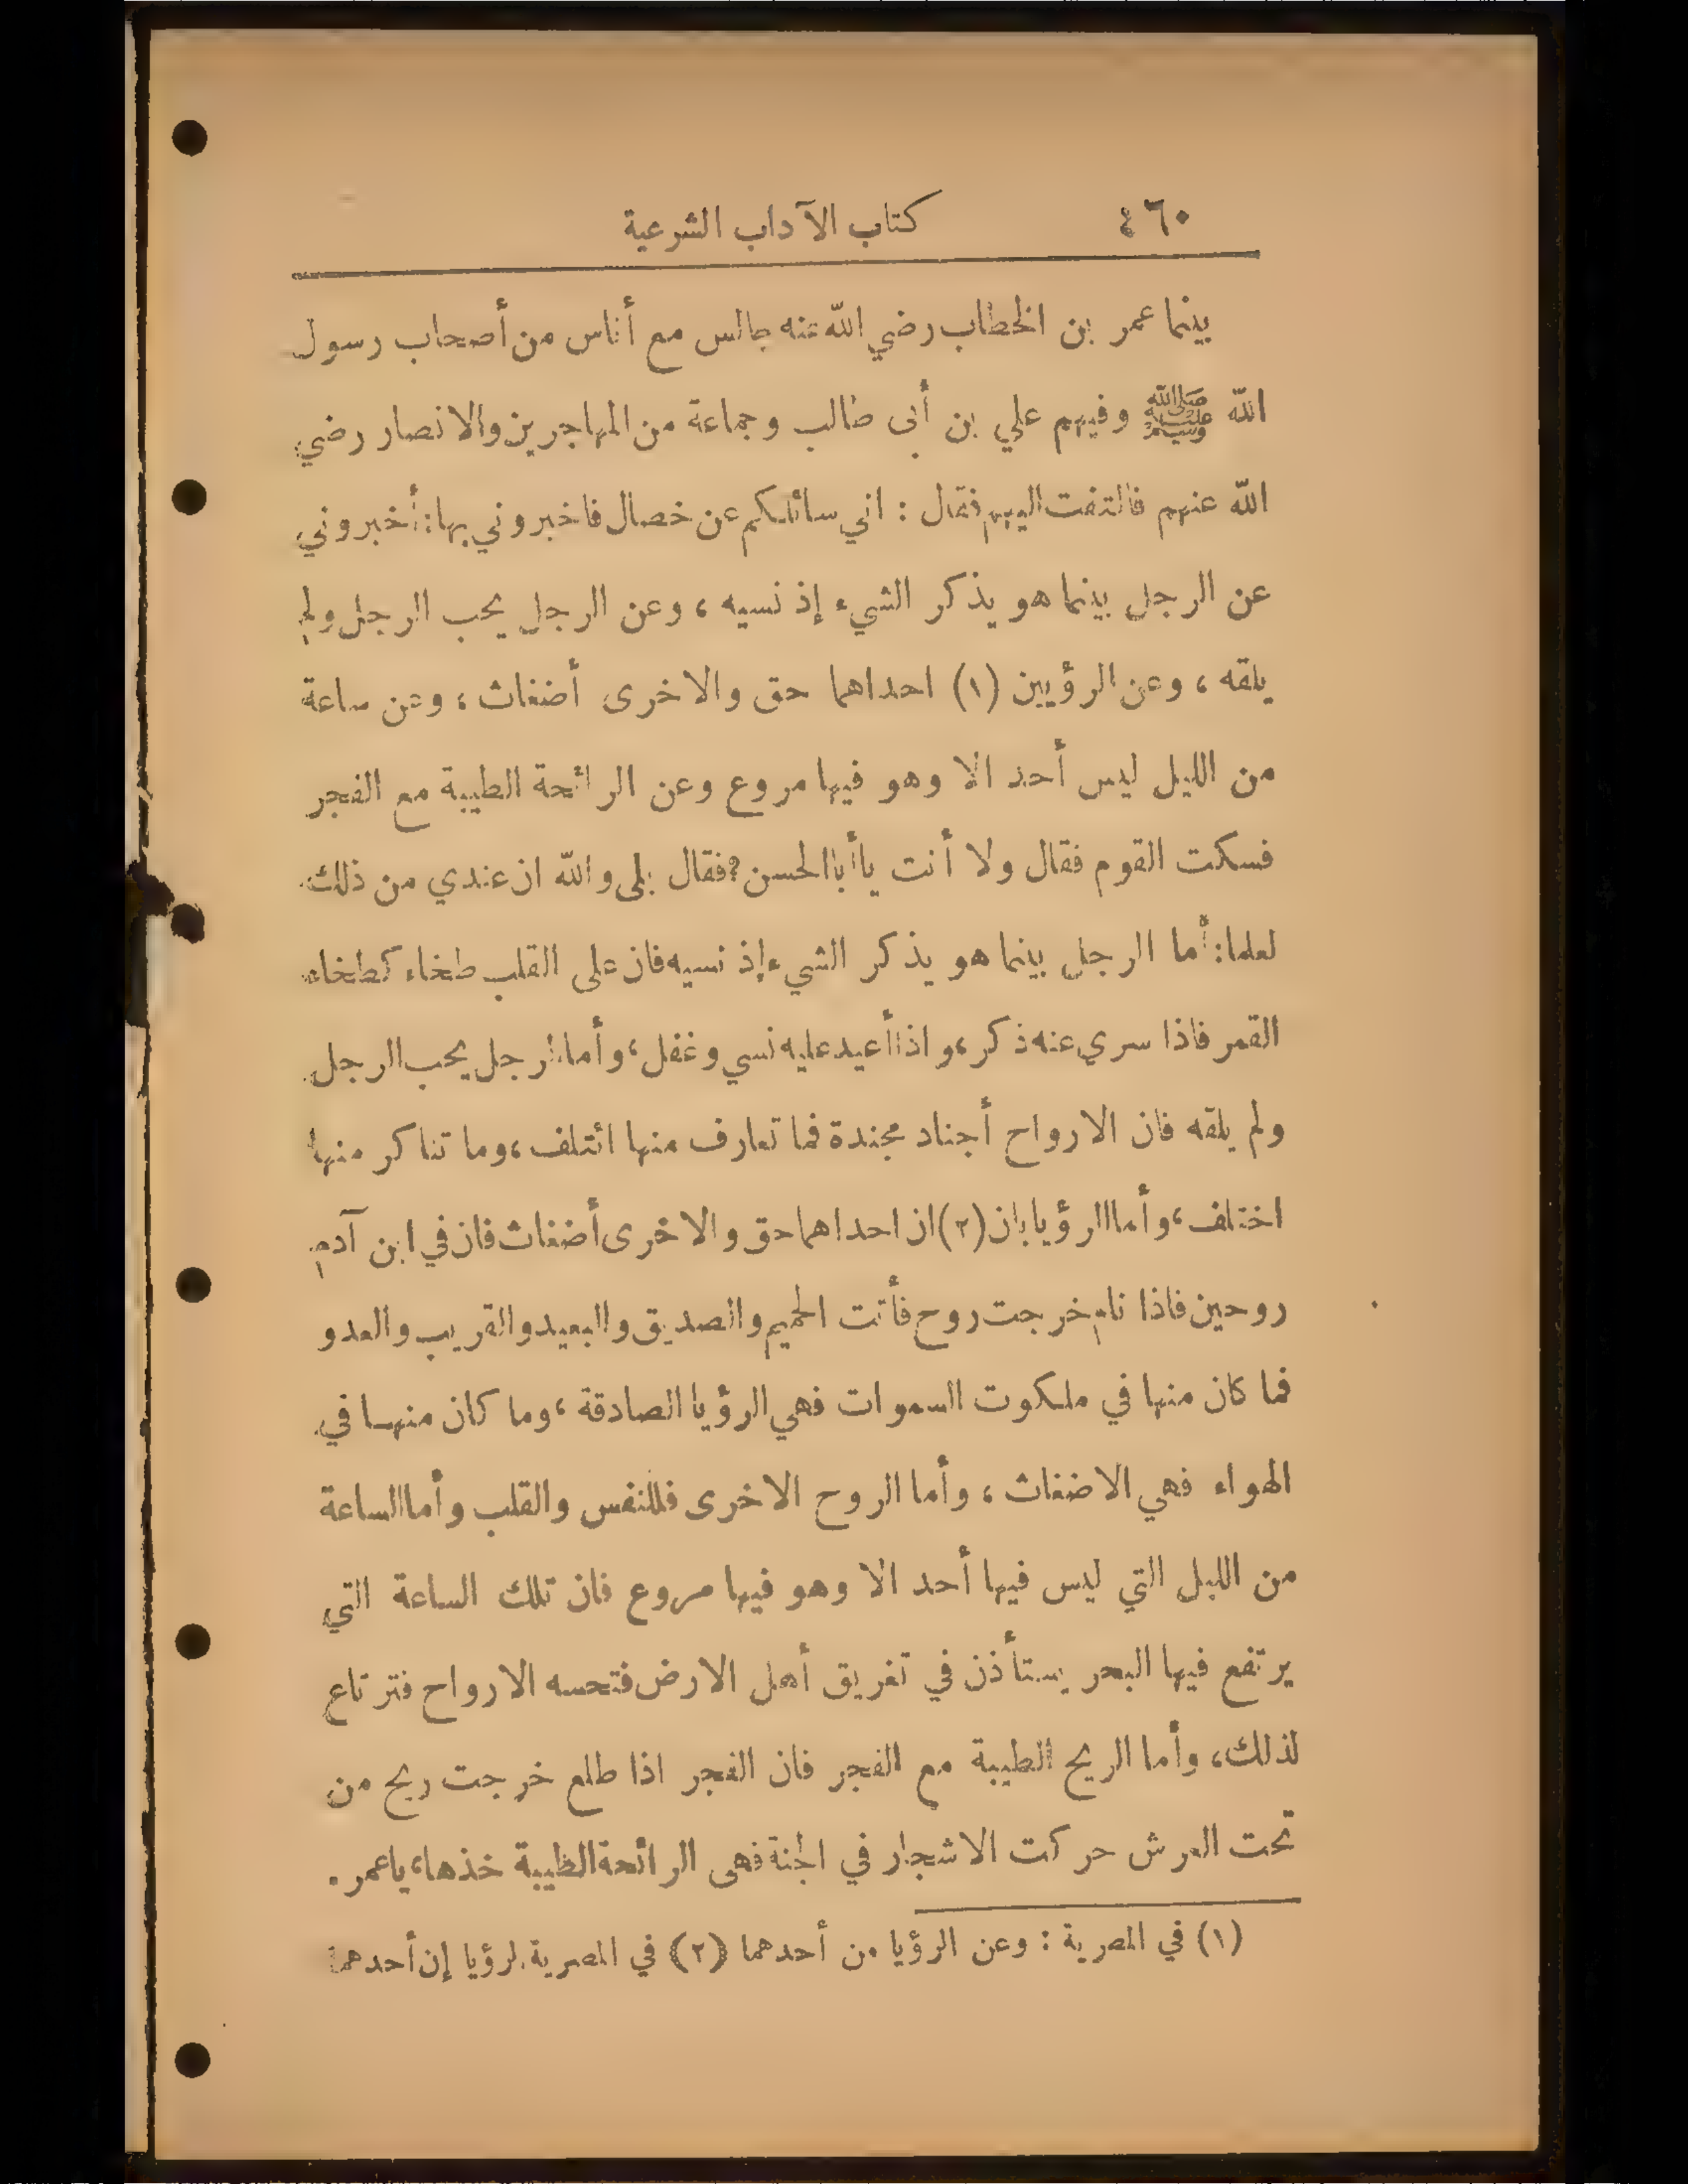 ٤٦٠ كتاب الآداب الشرعية
بينما عمر بن الخطاب رضي الله عنه جالس مع أناس من أصحاب رسول
الله ﷺ وفيهم علي بن أبى طالب وجماعة من المهاجرين والانصار رضي
الله عنهم فالتفت اليهم فقال : اني سائلكم عن خصال فاخبروني بها: أخبروني
عن الرجل بينما هو يذكر الشيء إذ نسيه ، وعن الرجل يحب الرجل ولم
يلقه ، وعن الرؤيين (١) احداهما حق والاخرى أضغاث ، وعن ساعة
من الليل ليس أحد الا وهو فيها مروع وعن الرائحة الطيبة مع الفجر
فسكت القوم فقال ولا أنت يا أبا الحسن؟ فقال بلى والله ان عندي من ذلك
لعلما: أما الرجل بينما هو يذكر الشيء إذ نسيه فان على القلب طخاء كطخاء
القمر فاذا سري عنه ذكر، واذا أعيد عليه نسي وغفل، وأما الرجل يحب الرجل
ولم يلقه فان الارواح أجناد مجندة فما تعارف منها ائتلف، وما تناكر منها
اختلف، وأما الرؤيا بان (٢) ان احداهما حق والاخرى أضغاث فان في ابن آدم
روحين فاذا نام خرجت روح فأتت الحميم والصديق والبعيد والقريب والعدو
فما كان منها في ملكوت السموات فهي الرؤيا الصادقة ، وما كان منها في
الهواء فهي الاضغاث ، وأما الروح الاخرى فللنفس والقلب وأما الساعة
من الليل التي ليس فيها أحد الا وهو فيها مروع فان تلك الساعة التي
يرتفع فيها البحر يستأذن في تغريق أهل الارض فتحسه الارواح فترتاع
لذلك، وأما الريح الطيبة مع الفجر فان الفجر اذا طلع خرجت ريح من
تحت العرش حركت الاشجار في الجنة فهى الرائحة الطيبة خذها، يا عمر .
(١) في المصرية : وعن الرؤيا من أحدهما (٢) في المصرية لرؤيا إن أحدهما